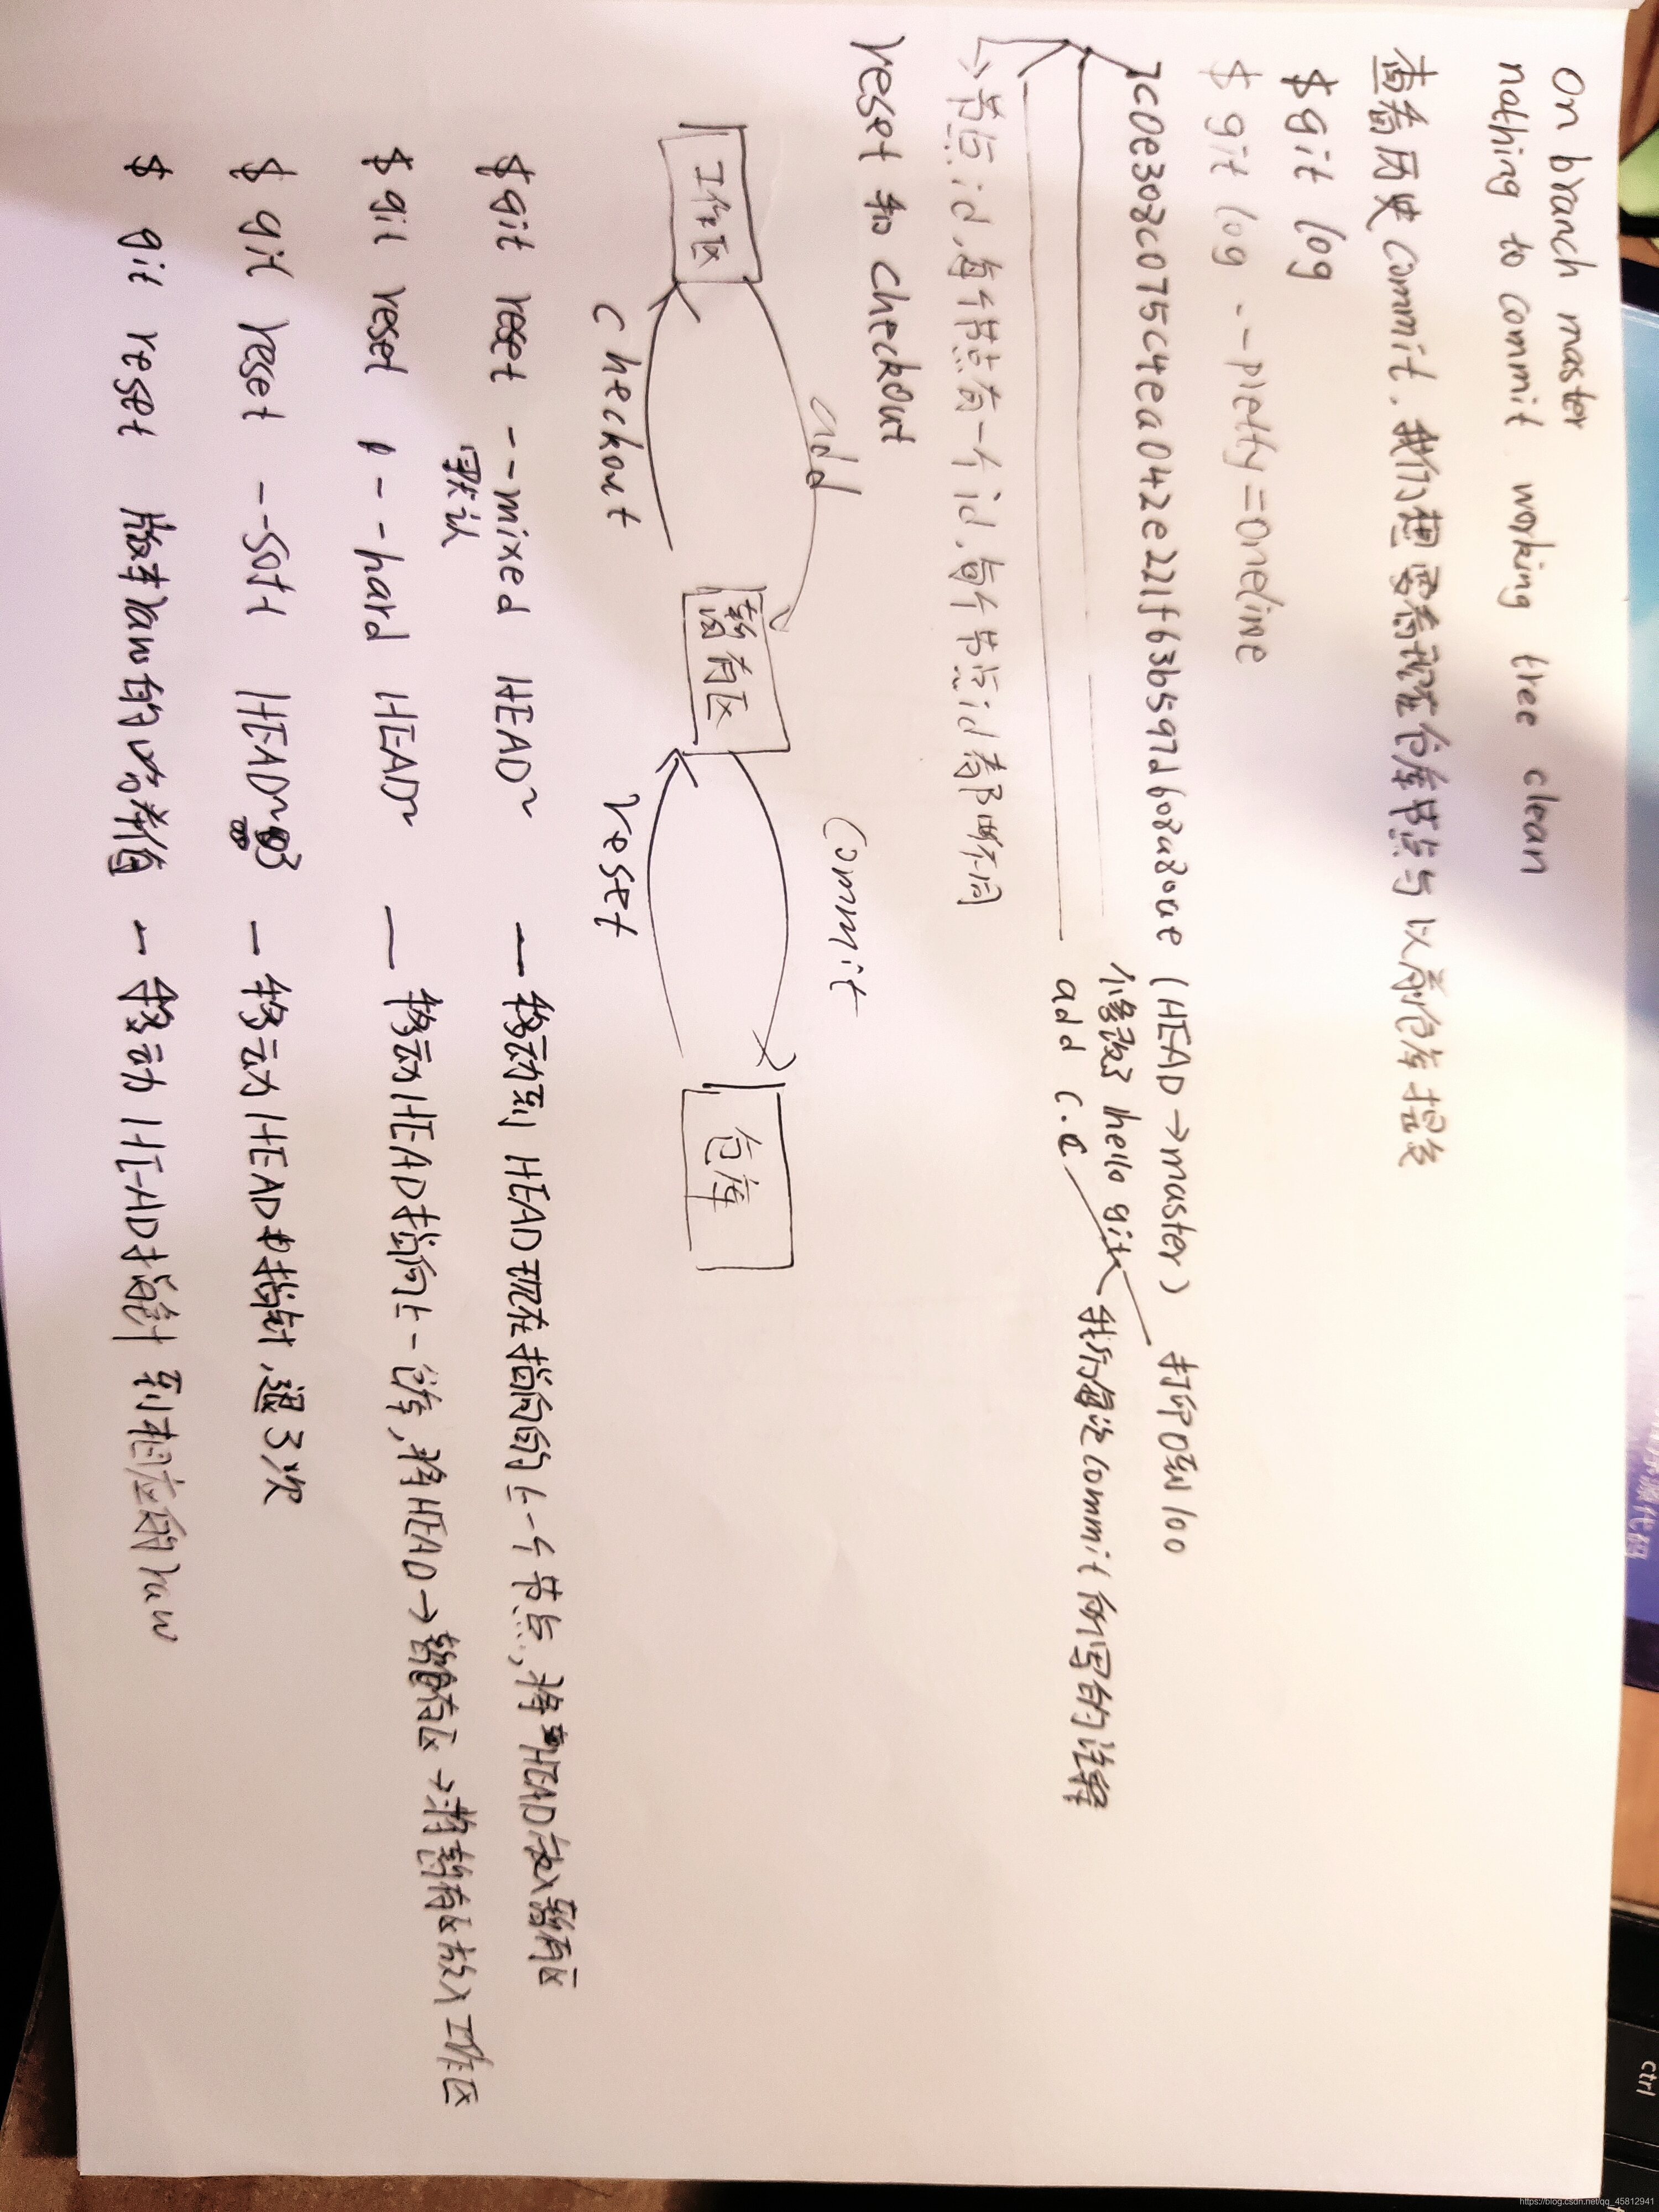 On branch master
nothing to commit working tree clean
查看历史commit.我们想要看现在仓库节点与以前仓库提交
$ git log
$ git log --pretty=oneline
(HEAD→master) 打印0到100
修改了 hello git
add c.c
我们每次commit所写的注释
→节点id,每个节点有一个id,每个节点id都不同
reset 和 checkout
add
commit
工作区
暂存区
仓库
checkout
reset
$ git reset --mixed HEAD~ — 移动到HEAD现在指向的上一个节点,将HEAD放入暂存区
默认
$ git reset --hard HEAD~ — 移动HEAD指向上一仓库,将HEAD→暂存区→将暂存区放入工作区
$ git reset --soft HEAD~3 — 移动HEAD指针,退3次
$ git reset 版本raw的 — 移动HEAD指针到相应的raw
源代码
ctrl
https://blog.csdn.net/qq_45812941